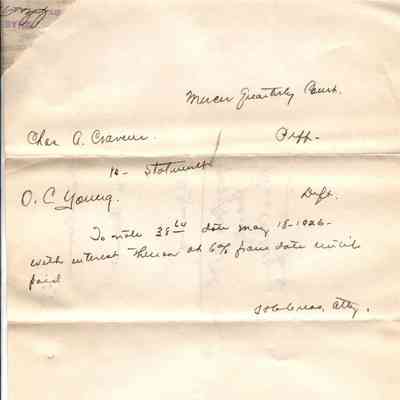 Mercer Quarterly Court.
Chas A. Craven. Plff.
16 - Statement
O. C. Young. Deft.
To note date May 18-1926-
with interest thereon at 6% from date until
paid
Atty.